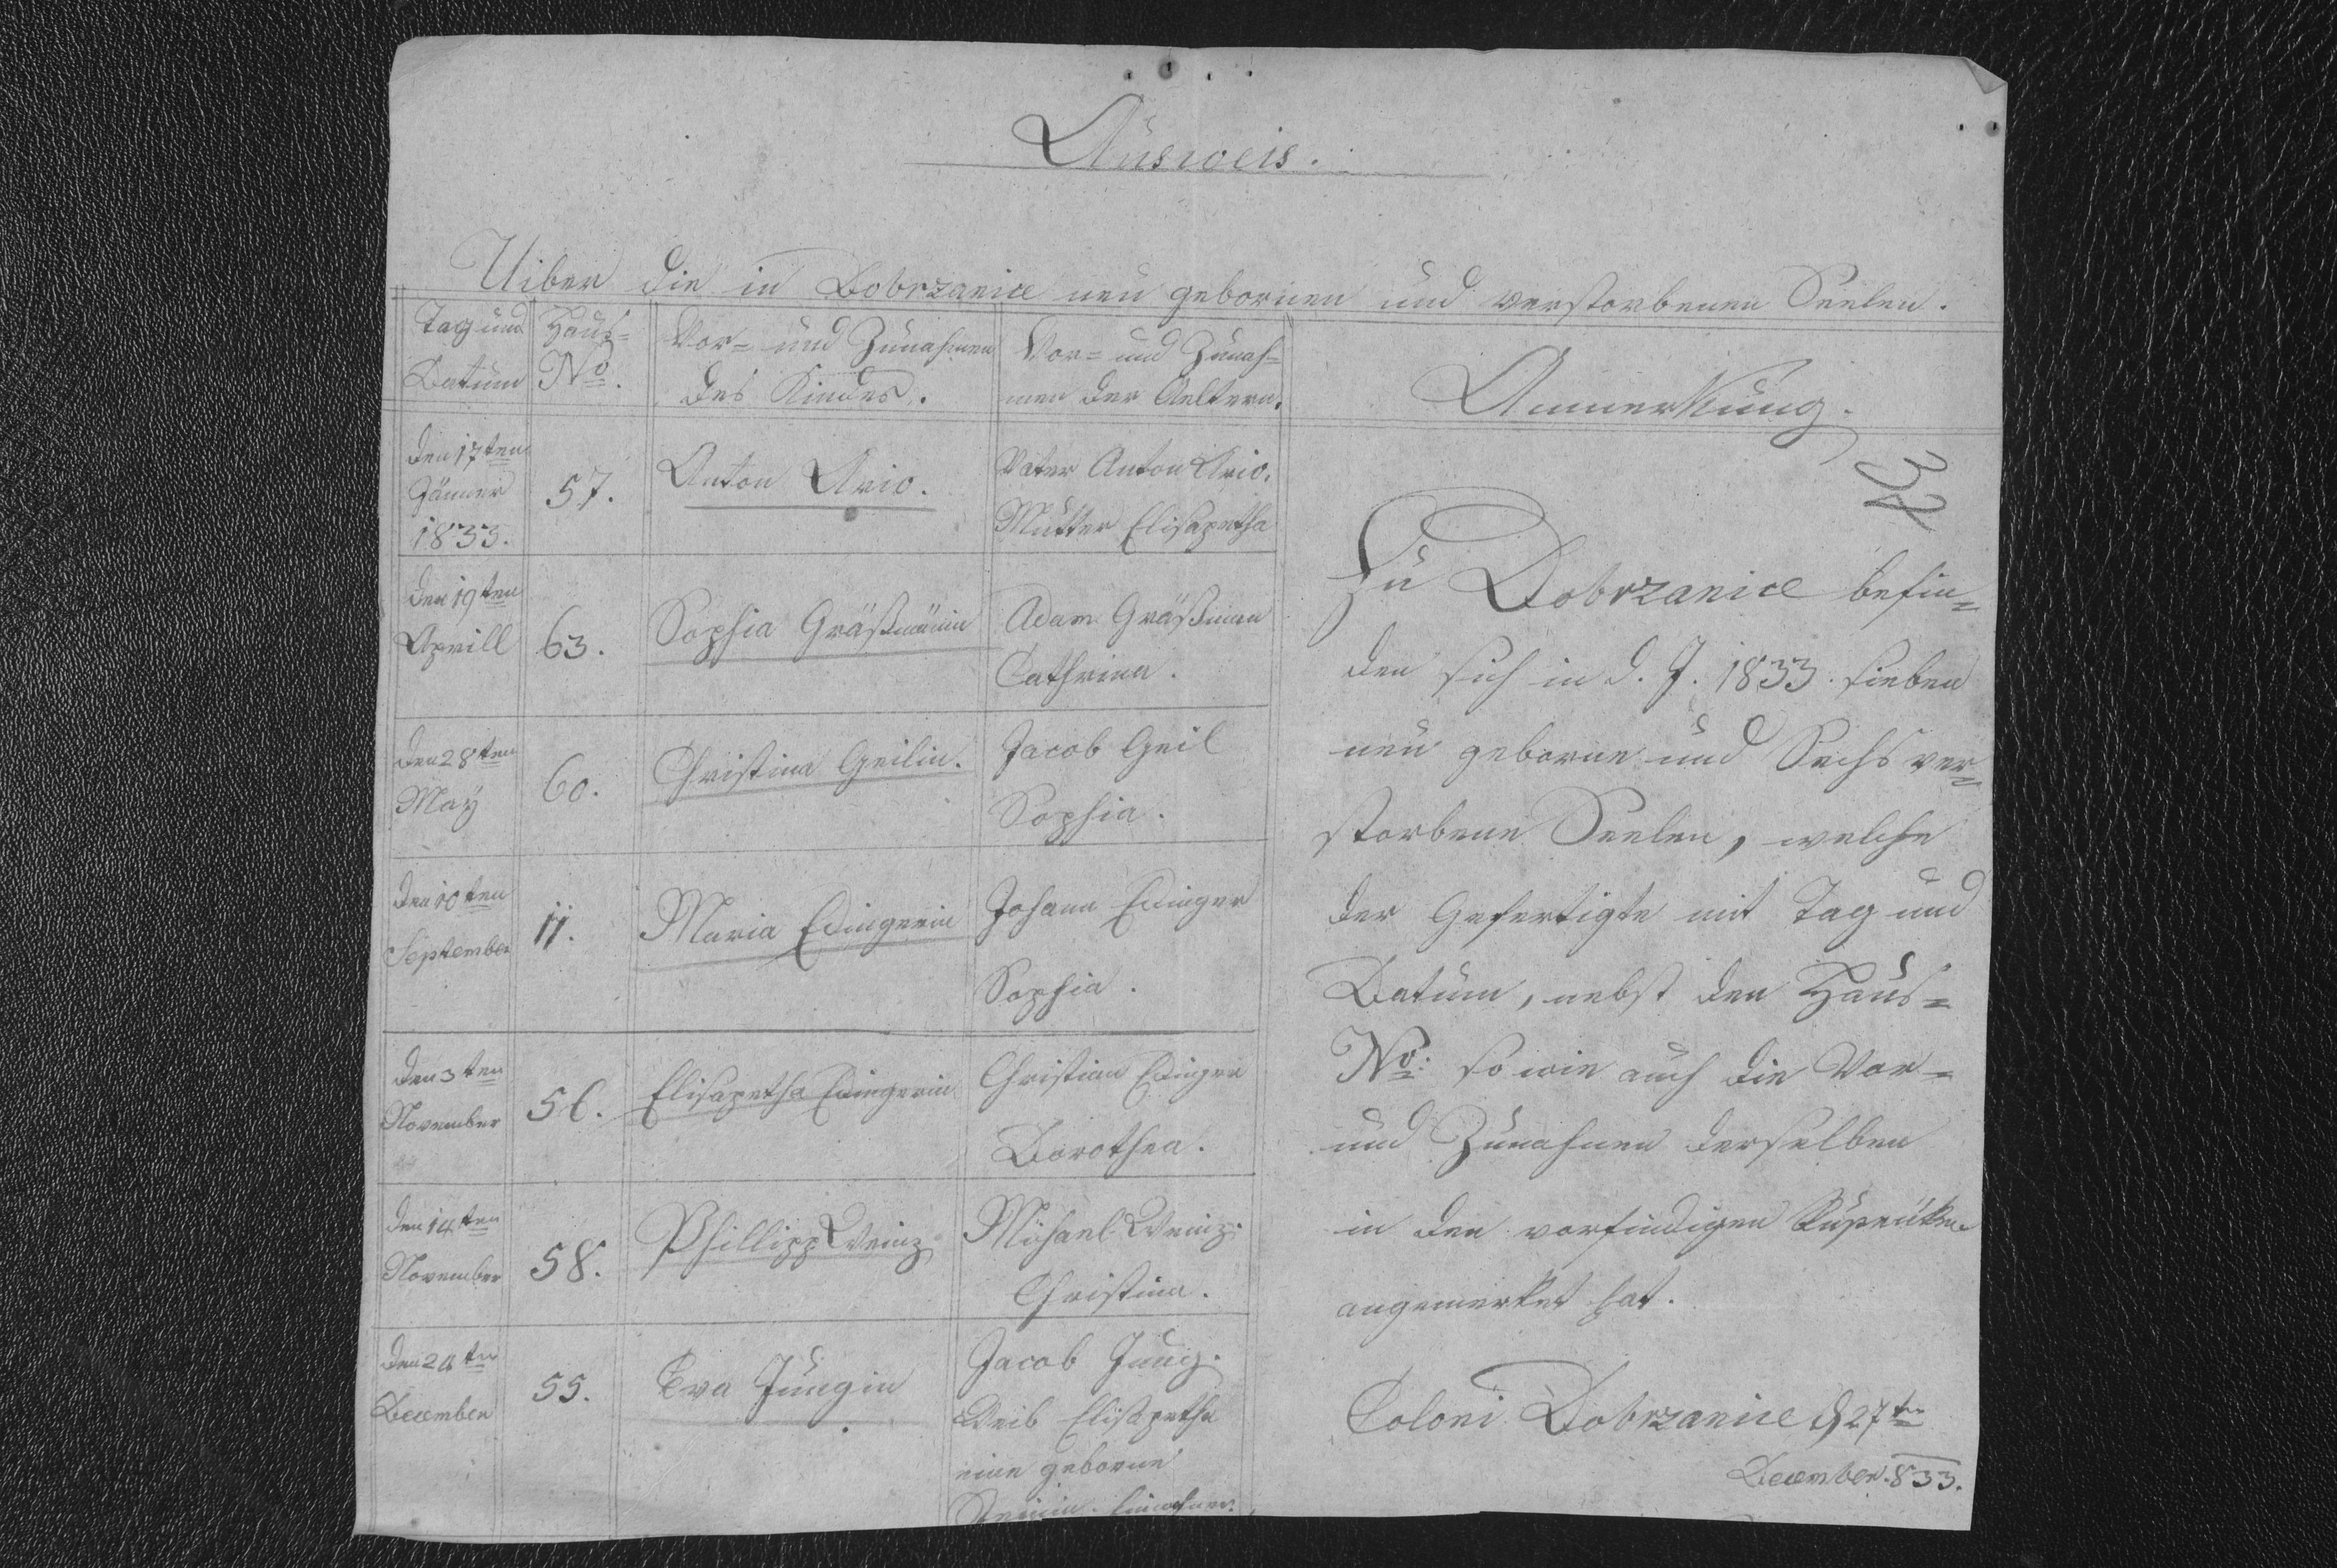 Ausweis.
Uiber die in Dobrzanice neu gebornen und verstorbenen Seelen.
Tag und
Datum
Haus=
No.
Vor= und Zunahmen
des Kindes.
Vor= und Zunah=
men der Aeltern.
Anmerkung.
den 17ten
Jänner
1833.
57.
Anton Ario.
Vater Anton Ario.
Mutter Elisapetha
den 19ten
Aprill
63.
Sophia Gräßmänin
Adam Gräßman
Cathrina.
den 28ten
Maÿ
60.
Christina Geilin.
Jacob Geil
Sophia.
den 10ten
September
11.
Maria Edingerin
Johann Edinger
Sophia.
den 3ten
November
56.
Elisapetha Edingerin
Christian Edinger
Dorothea.
den 14ten
November
58.
Phillipp Weinz
Michael Weinz.
Christina.
den 24ten
December
55.
Eva Jungin
Jacob Jung.
Weib Elisapetha
eine geborne
32
Zu Dobrzanice befin=
den sich in d. J. 1833. sieben
neu geborne und Sechs ver=
storbene Seelen, welche
der Gefertigte mit Tag und
Datum, nebst den Haus=
No: so wie auch die Vor=
und Zunahmen derselben
in den vorfindigen
angemerket hat.
Coloni Dobrzanice d 27ten
December 833.